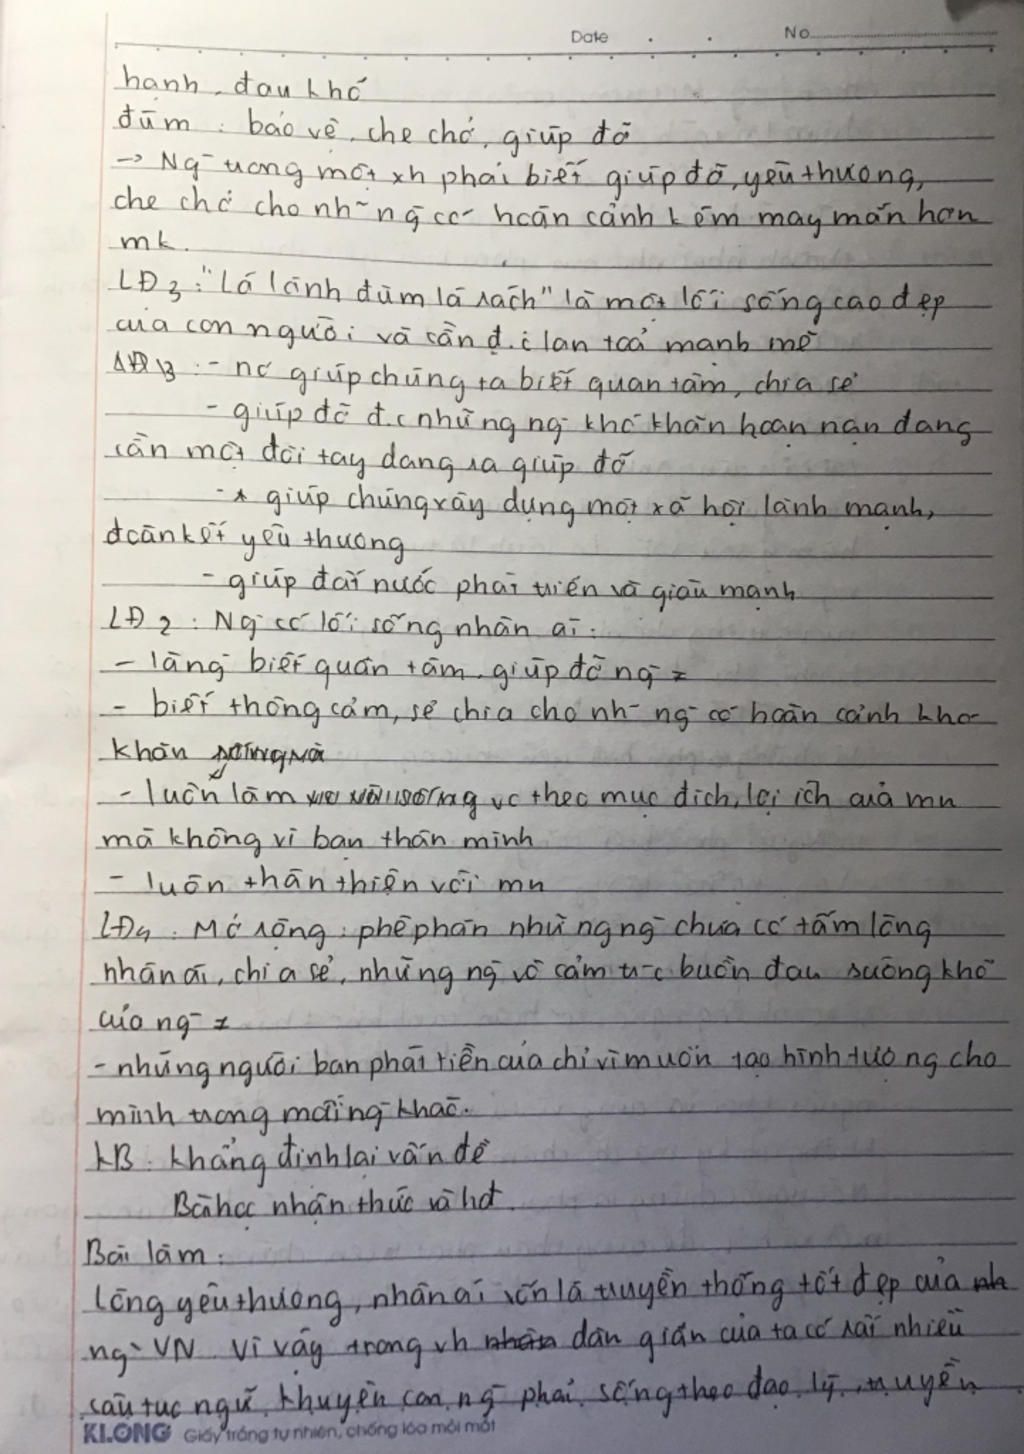 Date No
hạnh, đau khổ
đùm : bảo vệ, che chở, giúp đỡ
→ Ng- trong một xh phải biết giúp đỡ, yêu thương,
che chở cho nh~ ng- có hoàn cảnh kém may mắn hơn
mk.
LĐ3 : "Lá lành đùm lá rách" là một lối sống cao đẹp
của con người và cần đ.c lan toả mạnh mẽ
LĐ3 : - nó giúp chúng ta biết quan tâm, chia sẻ
- giúp đỡ đ.c những ng- khó khăn hoạn nạn đang
cần một đôi tay dang ra giúp đỡ
- giúp chúng xây dựng một xã hội lành mạnh,
đoàn kết yêu thương
- giúp đất nước phát triển và giàu mạnh
LĐ2 : Ng- có lối sống nhân ái :
- là ng- biết quan tâm, giúp đỡ ng- ≠
- biết thông cảm, sẻ chia cho nh~ ng- có hoàn cảnh khó
khăn
- luôn làm vc theo mục đích, lợi ích của mn
mà không vì bản thân mình
- luôn thân thiện với mn
LĐ4 : Mở rộng : phê phán những ng- chưa có tấm lòng
nhân ái, chia sẻ, những ng- vô cảm tr-c buồn đau sướng khổ
của ng- ≠
- những người ban phát tiền của chỉ vì muốn tạo hình tượng cho
mình trong mắt ng- khác.
KB : khẳng định lại vấn đề
Bài học nhận thức và hđ.
Bài làm :
Lòng yêu thương, nhân ái vốn là truyền thống tốt đẹp của
ng- VN. Vì vậy trong vh dân gian của ta có rất nhiều
câu tục ngữ khuyên con ng- phải sống theo đạo lý, truyền
KLONG Giấy trắng tự nhiên, chống lóa mỏi mắt